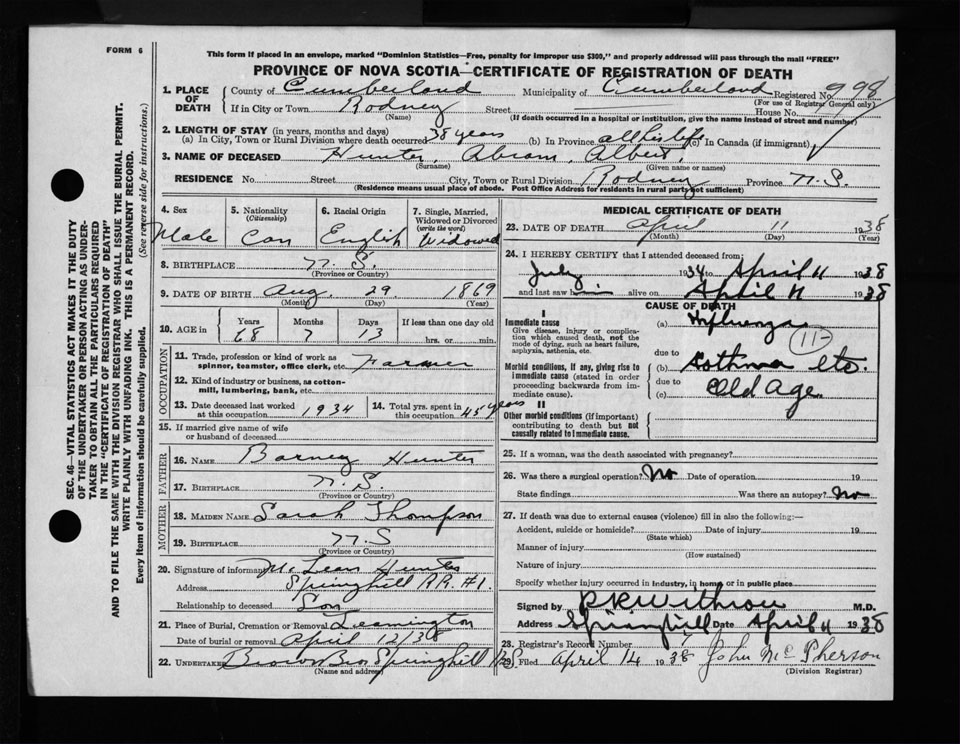 FORM 6
This form if placed in an envelope, marked "Dominion Statistics—Free, penalty for improper use $300," and properly addressed will pass through the mail "FREE"
PROVINCE OF NOVA SCOTIA—CERTIFICATE OF REGISTRATION OF DEATH
1. PLACE OF DEATH County of Cumberland Municipality of Cumberland Registered No. 998
(For use of Registrar General only)
If in City or Town Rodney Street House No.
(Name) (If death occurred in a hospital or institution, give the name instead of street and number)
2. LENGTH OF STAY (in years, months and days)
(a) In City, Town or Rural Division where death occurred 38 years (b) In Province all his life (c) In Canada (if immigrant)
3. NAME OF DECEASED Hunter, Abram, Albert.
(Surname) (Given name or names)
RESIDENCE No. Street City, Town or Rural Division Rodney Province N.S.
(Residence means usual place of abode. Post Office Address for residents in rural parts not sufficient)
4. Sex Male
5. Nationality (Citizenship) Can
6. Racial Origin English
7. Single, Married, Widowed or Divorced (write the word) Widowed
8. BIRTHPLACE N.S.
(Province or Country)
9. DATE OF BIRTH Aug. 29. 1869
(Month) (Day) (Year)
10. AGE in Years Months Days If less than one day
68 7 13 hrs. or min.
OCCUPATION
11. Trade, profession or kind of work as spinner, teamster, office clerk, etc. Farmer
12. Kind of industry or business, as cotton-mill, lumbering, bank, etc.
13. Date deceased last worked at this occupation 1934
14. Total yrs. spent in this occupation 45 years
15. If married give name of wife or husband of deceased
FATHER
16. NAME Barney Hunter
17. BIRTHPLACE N.S.
(Province or Country)
MOTHER
18. MAIDEN NAME Sarah Thompson
19. BIRTHPLACE N.S
(Province or Country)
20. Signature of informant McLean Hunter
Address Springhill R.R. #1.
Relationship to deceased Son
21. Place of Burial, Cremation or Removal Leamington
Date of burial or removal April 12/38
22. UNDERTAKER Brown Bros Springhill N.S
(Name and address)
MEDICAL CERTIFICATE OF DEATH
23. DATE OF DEATH April 11 1938
(Month) (Day) (Year)
24. I HEREBY CERTIFY that I attended deceased from:
July 1934 to April 11 1938
and last saw him alive on April 11 1938
CAUSE OF DEATH
I
Immediate cause
Give disease, injury or complication which caused death, not the mode of dying, such as heart failure, asphyxia, asthenia, etc.
(a) Influenza
due to
Morbid conditions, if any, giving rise to immediate cause (stated in order proceeding backwards from immediate cause).
(b) Asthma etc.
due to
(c) Old Age
II
Other morbid conditions (if important) contributing to death but not causally related to immediate cause.
25. If a woman, was the death associated with pregnancy?
26. Was there a surgical operation? No Date of operation 19
State findings Was there an autopsy? No
27. If death was due to external causes (violence) fill in also the following:—
Accident, suicide or homicide? Date of injury 19
(State which)
Manner of injury
(How sustained)
Nature of injury
Specify whether injury occurred in industry, in home or in public place
Signed by R K Withrow M.D.
Address Springhill Date April 11 1938
28. Registrar's Record Number 7
29. Filed April 14 1938 John McPherson
(Division Registrar)
SEC. 46—VITAL STATISTICS ACT MAKES IT THE DUTY
OF THE UNDERTAKER OR PERSON ACTING AS UNDER-
TAKER TO OBTAIN ALL THE PARTICULARS REQUIRED
IN THE "CERTIFICATE OF REGISTRATION OF DEATH"
AND TO FILE THE SAME WITH THE DIVISION REGISTRAR WHO SHALL ISSUE THE BURIAL PERMIT.
WRITE PLAINLY WITH UNFADING INK. THIS IS A PERMANENT RECORD.
Every item of information should be carefully supplied. (See reverse side for instructions.)